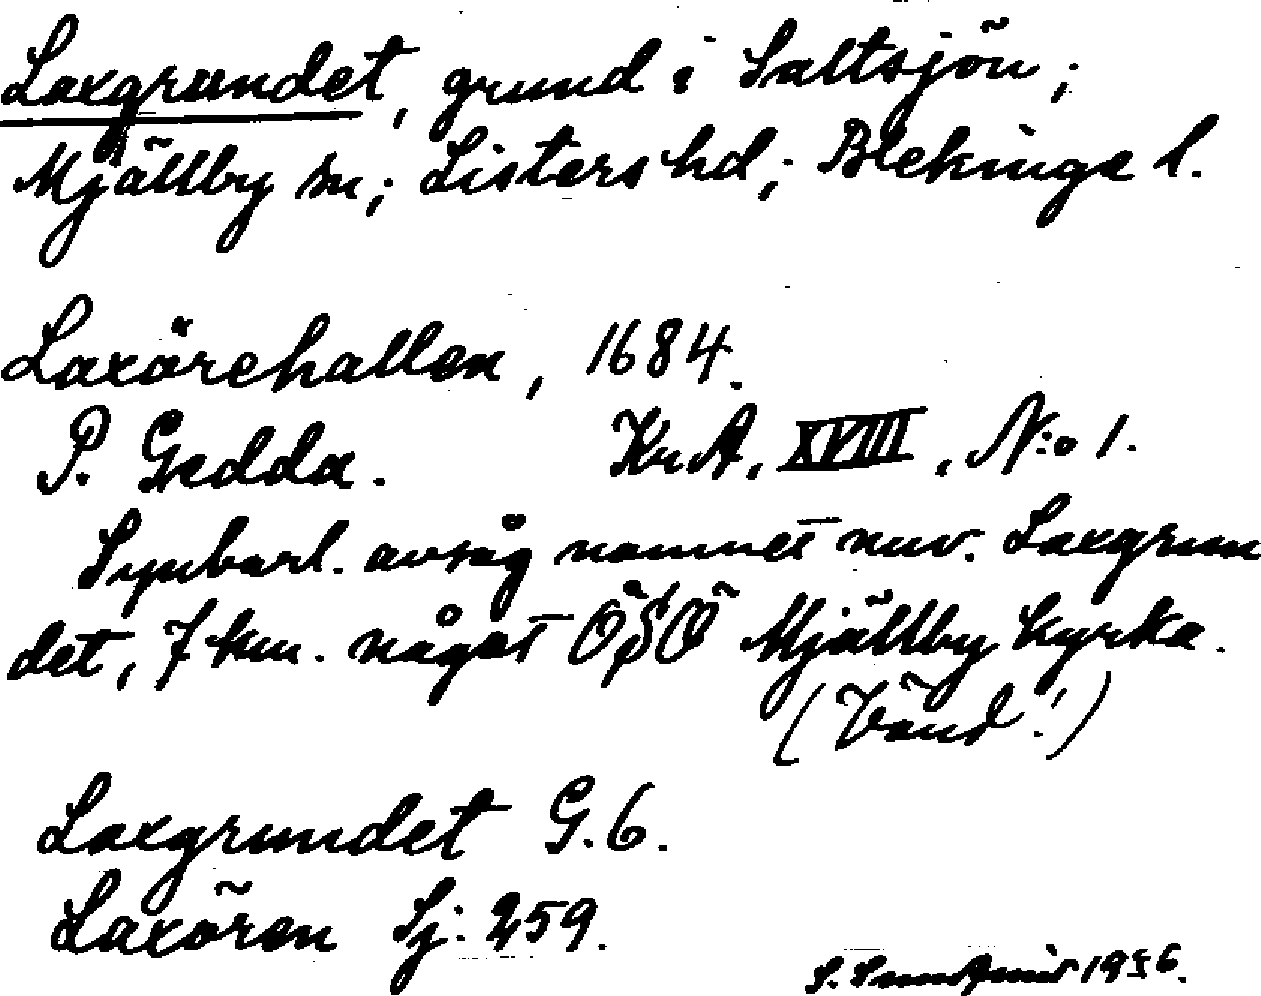 Laxgrundet, grund i Saltsjön;
Mjällby sn; Listers hd; Blekinge l.
Laxörehallen, 1684.
P. Gedda. KrA, XVIII, N:o 1.
Synbarl. avsåg namnet nuv. Laxgrun
det, 7 km. något ÖSÖ Mjällby kyrka.
(Vänd!)
Laxgrundet G.6.
Laxören Sj: 259.
S. 1956.